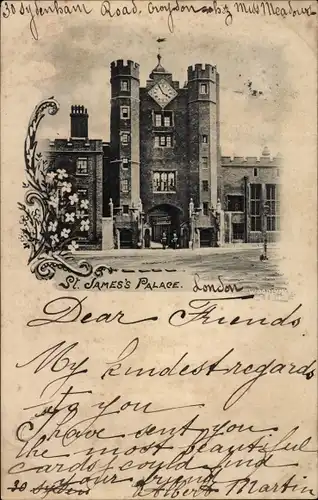 30 Sydenham Road, Croydon by Miss Meadow
St. James's Palace. London
Dear Friends
My kindest regards
to you
I have sent you
the most beautiful
cards I could find
your friend
30 Albert Martin